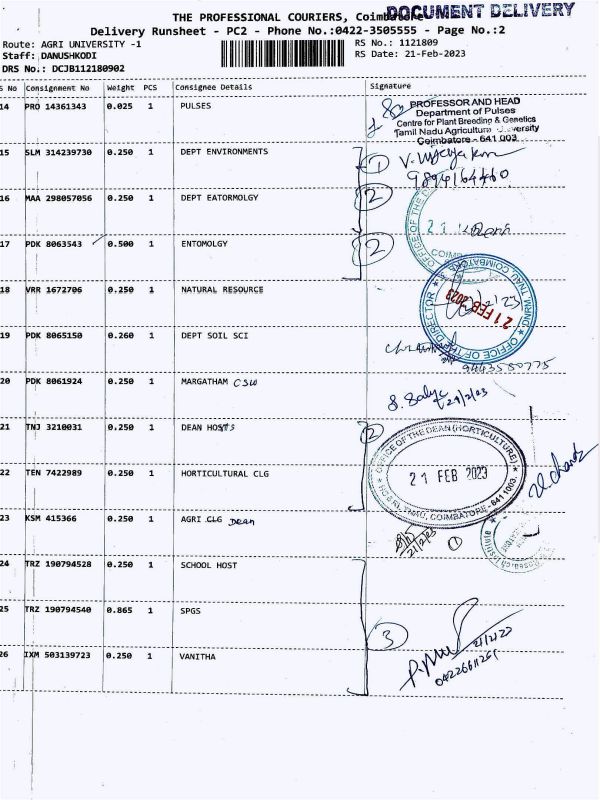 DOCUMENT DELIVERY
THE PROFESSIONAL COURIERS, Coimbatore
Delivery Runsheet - PC2 - Phone No.:0422-3505555 - Page No.:2
Route: AGRI UNIVERSITY -1 RS No.: 1121809
Staff: DANUSHKODI RS Date: 21-Feb-2023
DRS No.: DCJB112180902
S No Consignment No Weight PCS Consignee Details Signature
14 PRO 14361343 0.025 1 PULSES
PROFESSOR AND HEAD
Department of Pulses
Centre for Plant Breeding & Genetics
Tamil Nadu Agricultural University
Coimbatore - 641 003
15 SLM 314239730 0.250 1 DEPT ENVIRONMENTS 1
16 MAA 298057056 0.250 1 DEPT EATORMOLGY 2
OFFICE OF THE
21
17 PDK 8063543 0.500 1 ENTOMOLGY 2
18 VRR 1672706 0.250 1 NATURAL RESOURCE
OFFICE OF THE DIRECTOR
TNAU, COIMBATORE
21 FEB 2023
19 PDK 8065150 0.260 1 DEPT SOIL SCI
9443580775
20 PDK 8061924 0.250 1 MARGATHAM CSW
21/2/23
21 TNJ 3210031 0.250 1 DEAN HOSTS 2
OFFICE OF THE DEAN (HORTICULTURE)
21 FEB 2023
TNAU, COIMBATORE - 641 003.
22 TEN 7422989 0.250 1 HORTICULTURAL CLG
23 KSM 415366 0.250 1 AGRI CLG Dean
21/2/23 1
24 TRZ 190794528 0.250 1 SCHOOL HOST
25 TRZ 190794540 0.865 1 SPGS 3
21/2/23
26 IXM 503139723 0.250 1 VANITHA